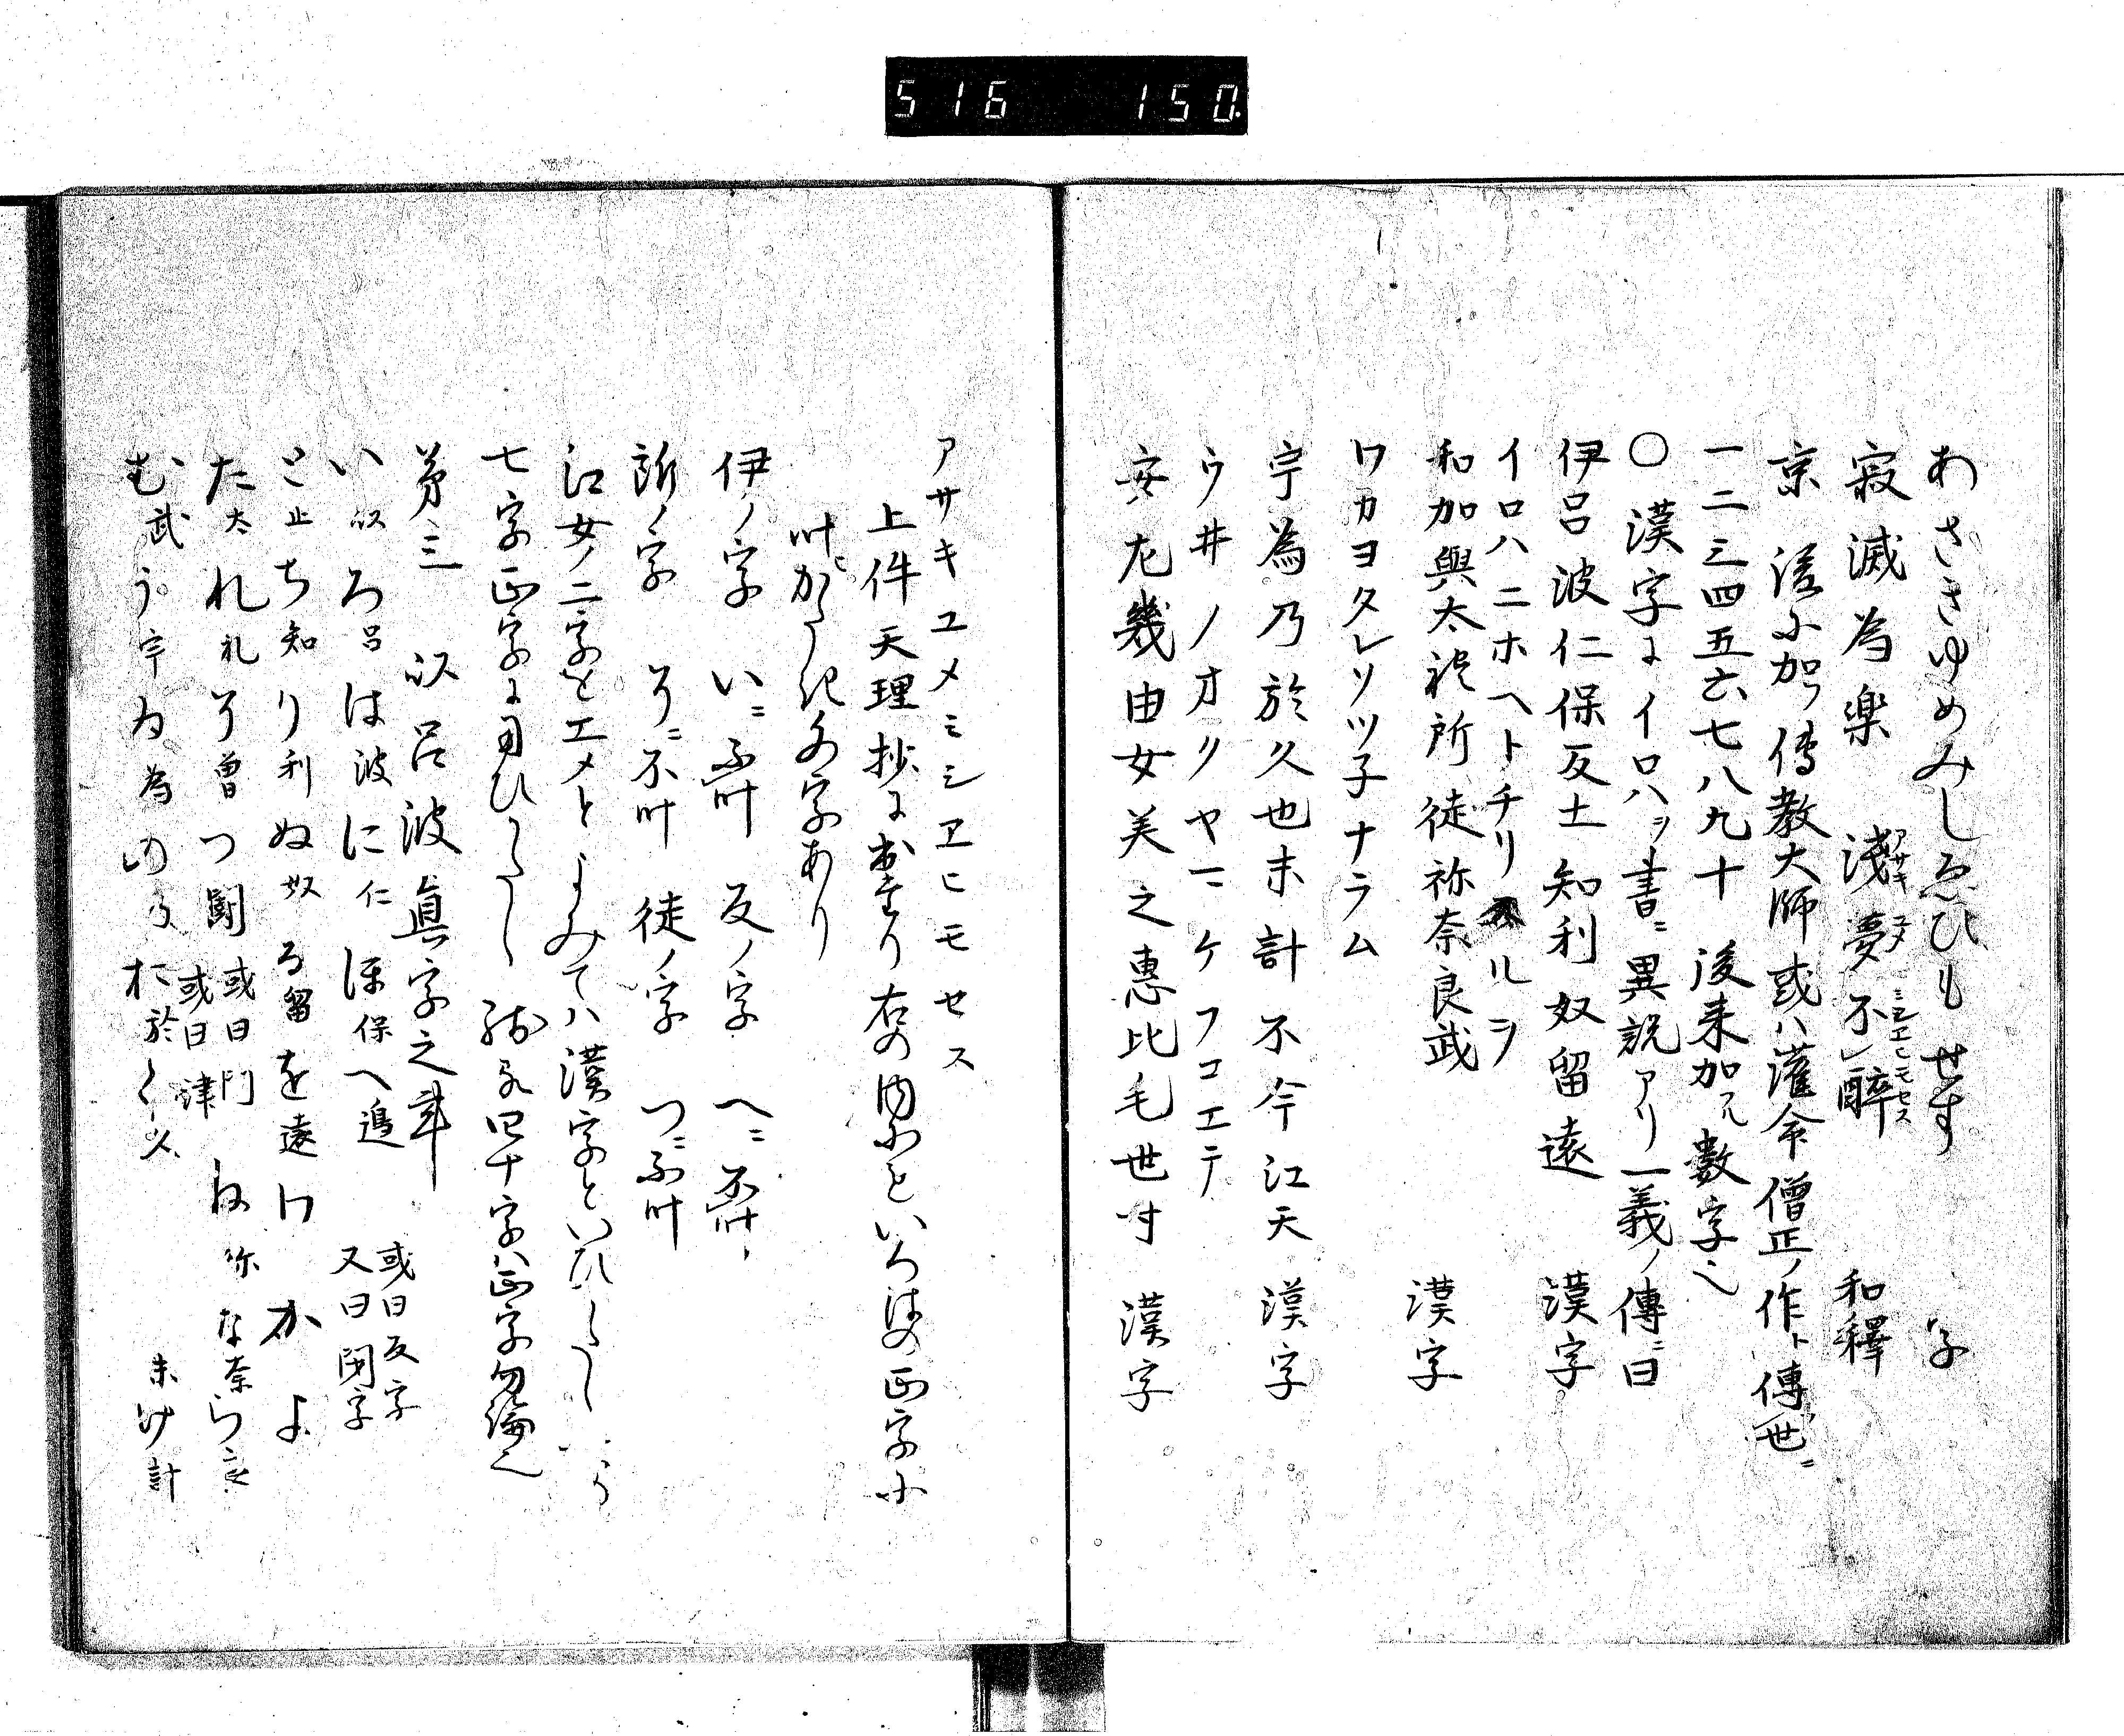 516 150.
あさきゆめみしゑひもせす 字
寂滅為楽 淺夢不レ醉 和釋
アサキユメミシエヒモセス
京 後ニ加フ傳教大師或ハ護命僧正ノ作ト傳世ニ
一二三四五六七八九十 後来加フル數字也
〇 漢字ニイロハヲ書ニ異説アリ一義ノ傳ニ曰
伊呂波仁保反土知利奴留遠 漢字
イロハニホヘトチリヌルヲ
和加與太礼所徒祢奈良武 漢字
ワカヨタレソツ子ナラム
宇為乃於久也末計不今江天 漢字
ウ井ノオクヤマケフコエテ
安左幾由女美之惠比毛世寸 漢字
アサキユメミシヱヒモセス
上件天理抄に出たり右の内にといろはの正字に
叶かたき文字あり
伊ノ字 いニ不叶 反ノ字 へニ不叶
所ノ字 そニ不叶 徒ノ字 つニ不叶
江女ノ二字をエメとよみてハ漢字といひかたし
七字正字に用ひかたし 残る四十字ハ正字勿論也
第三 以呂波真字之事
い以 ろ呂 は波 に仁 ほ保 へ邉 或曰反字 又曰閇字
と止 ち知 り利 ぬ奴 る留 を遠 わ か よ
た太 れ礼 そ曽 つ闘 或曰門 或曰津 ね祢 な奈 ら
む武 う宇 ゐ為 の乃 お於 く久 末 け計